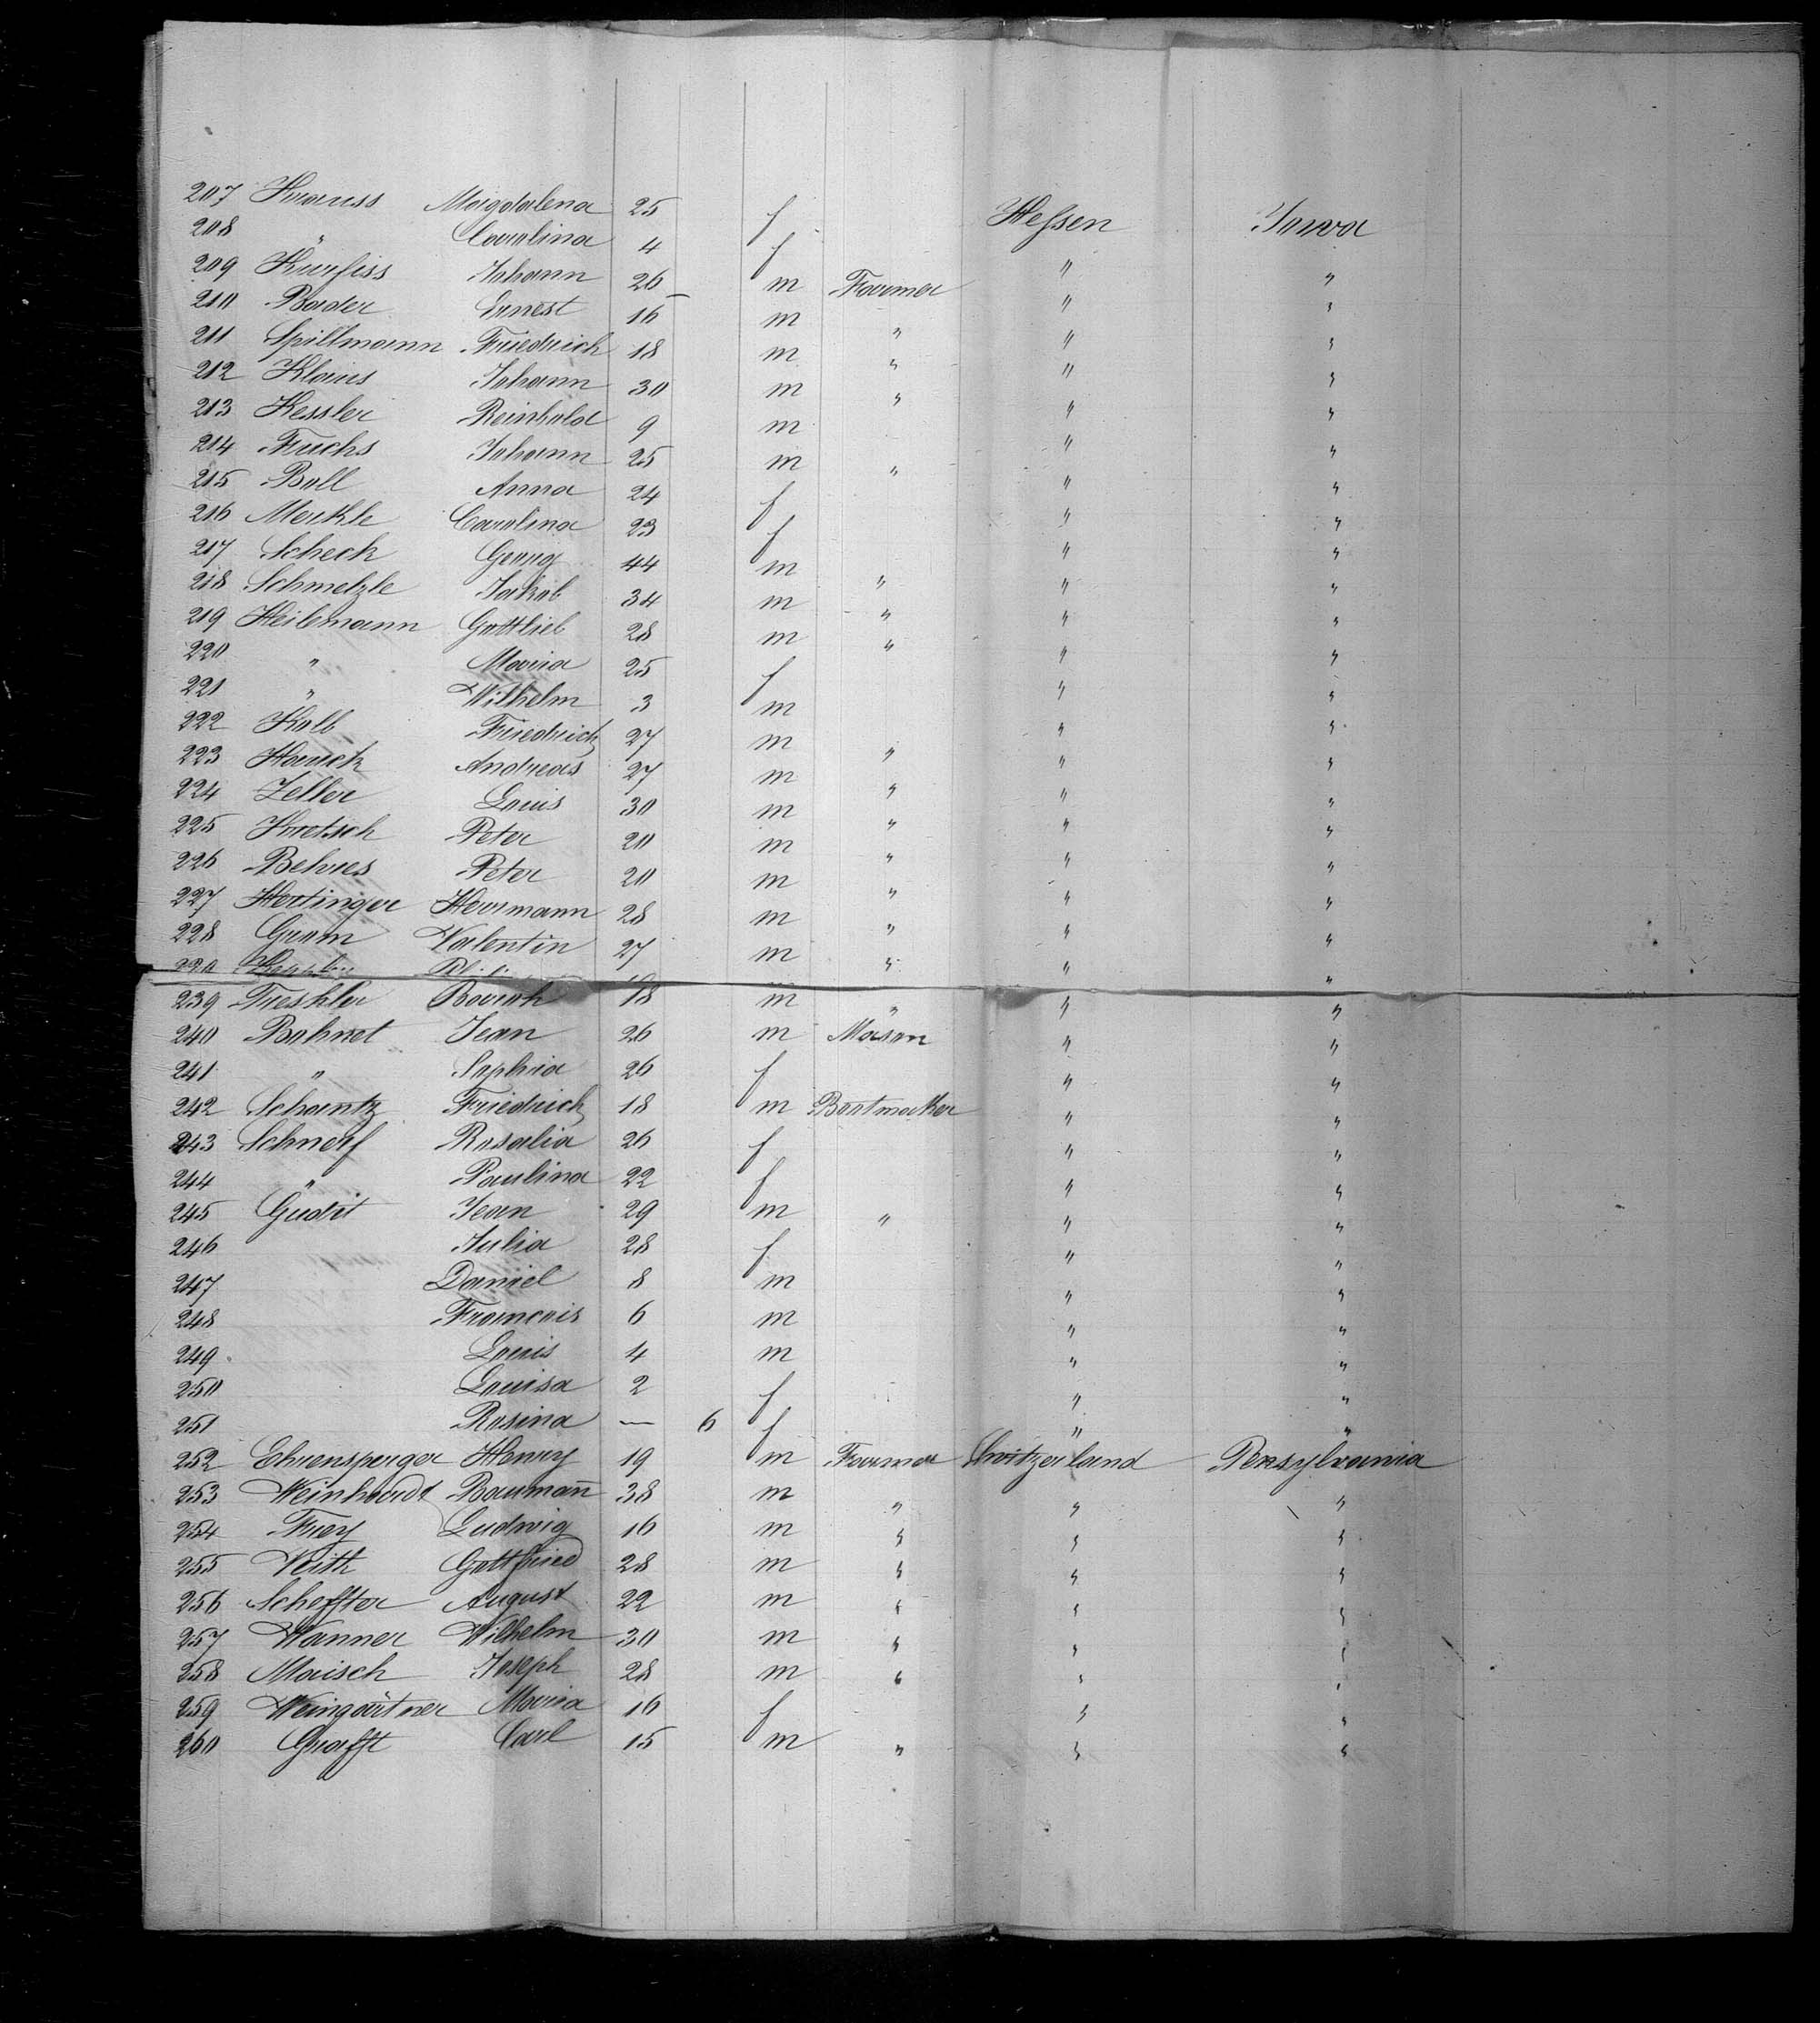 207 Krauss Magdalena 25 f Hessen Iowa
208 " Carolina 4 f " "
209 Kurfiss Johann 26 m Farmer " "
210 Bader Ernest 16 m " " "
211 Spillmann Friedrich 18 m " " "
212 Klaus Johann 30 m " " "
213 Kessler Reinhold 9 m " "
214 Fuchs Johann 25 m " " "
215 Boll Anna 24 f " "
216 Merkle Carolina 23 f " "
217 Scheck Georg 44 m " " "
218 Schmelzle Jakob 34 m " " "
219 Heilemann Gottlieb 28 m " " "
220 " Maria 25 f " "
221 " Wilhelm 3 m " "
222 Kolb Friedrich 27 m " " "
223 Hauck Andreas 27 m " " "
224 Zeller Louis 30 m " " "
225 Kretsch Peter 20 m " " "
226 Behres Peter 20 m " " "
227 Hertinger Herrmann 28 m " " "
228 Gram Valentin 27 m " " "
239 Treshler 18 m " " "
240 Bohnet Jean 26 m Mason " "
241 " Sophia 26 f " "
242 Schantz Friedrich 18 m Bootmaker " "
243 Schnerf Rosalia 26 f " "
244 " Paulina 22 f " "
245 Gudit Jean 29 m " " "
246 Julia 28 f " "
247 Daniel 8 m " "
248 Francois 6 m " "
249 Louis 4 m " "
250 Louisa 2 f " "
251 Rosina — 6 f " "
252 Ehrensperger Henry 19 m Farmer Switzerland Pensylvania
253 Weinhardt Baumann 38 m " " "
254 Frey Ludwig 16 m " " "
255 Veith Gottfried 28 m " " "
256 Scheffter August 22 m " " "
257 Wanner Wilhelm 30 m " " "
258 Maisch Joseph 28 m " " "
259 Weingärtner Maria 16 f " "
260 Grafft Carl 15 m " " "